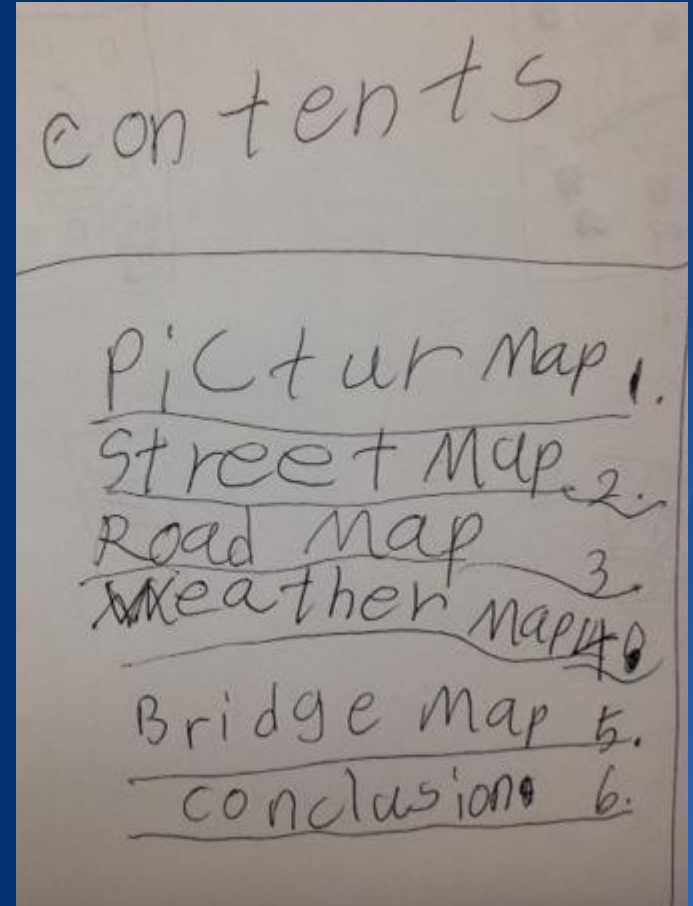 contents
Pictur Map 1.
Street Map 2.
Road Map 3.
Weather Map 4.
Bridge Map 5.
conclusion. 6.